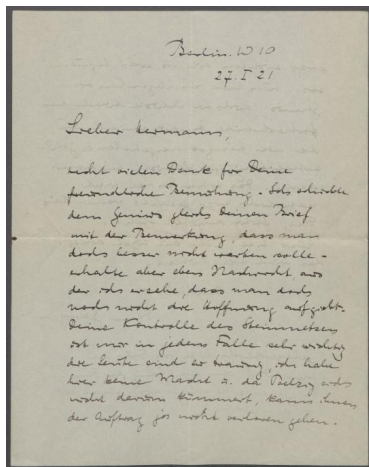 Berlin. W 10
27. I 21
Lieber Hermann,
recht vielen Dank für Deine
freundliche Bemühung. Ich schickte
dem gleich Deinen Brief
mit der Bemerkung, dass man
doch besser nicht warten solle -
erhalte aber eben Nachricht aus
der ich ersehe, dass man doch
noch nicht die Hoffnung aufgiebt.
Deine Kontrolle des Steinmetzen
ist mir in jedem Falle sehr wichtig
die Leute sind so traurig, ich habe
hier keine Macht u. da sich
nicht darum kümmert, kann ihnen
der Auftrag ja nicht verloren gehen.